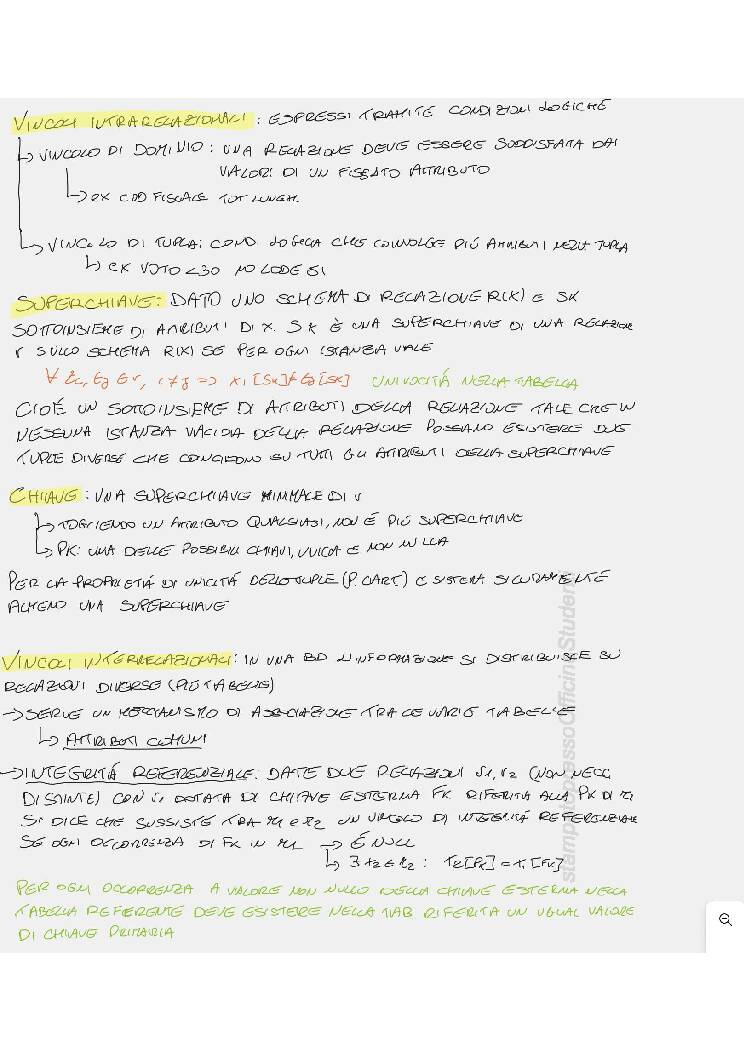 VINCOLI INTRARELAZIONALI: ESPRESSI TRAMITE CONDIZIONI LOGICHE
↳ VINCOLO DI DOMINIO: UNA RELAZIONE DEVE ESSERE SODDISFATTA DAI
VALORI DI UN FISSATO ATTRIBUTO
↳ ex COD FISCALE TOT LUNGH.
↳ VINCOLO DI TUPLA: COND LOGICA CHE COINVOLGE PIÙ ATTRIBUTI NELLA TUPLA
↳ ex VOTO <30 NO LODE SI
SUPERCHIAVE: DATO UNO SCHEMA DI RELAZIONE R(X) E SK
SOTTOINSIEME DI ATTRIBUTI DI X. SK È UNA SUPERCHIAVE DI UNA RELAZIONE
r SULLO SCHEMA R(X) SE PER OGNI ISTANZA VALE
UNIVOCITÁ NELLA TABELLA
CIOÉ UN SOTTOINSIEME DI ATTRIBUTI DELLA RELAZIONE TALE CHE IN
NESSUNA ISTANZA VALIDA DELLA RELAZIONE POSSANO ESISTERE DUE
TUPLE DIVERSE CHE COINCIDONO SU TUTTI GLI ATTRIBUTI DELLA SUPERCHIAVE
CHIAVE: UNA SUPERCHIAVE MINIMALE DI r
↳ TOGLIENDO UN ATTRIBUTO QUALSIASI, NON É PIÙ SUPERCHIAVE
↳ PK: UNA DELLE POSSIBILI CHIAVI, UNICA E NON NULLA
PER LA PROPRIETÀ DI UNICITÁ DELLE TUPLE (P. CART) ESISTERÁ SICURAMENTE
ALMENO UNA SUPERCHIAVE
VINCOLI INTERRELAZIONALI: IN UNA BD L'INFORMAZIONE SI DISTRIBUISCE SU
RELAZIONI DIVERSE (PIÙ TABELLE)
→ SERVE UN MECCANISMO DI ASSOCIAZIONE TRA LE VARIE TABELLE
↳ ATTRIBUTI COMUNI
→ INTEGRITÁ REFERENZIALE: DATE DUE RELAZIONI r1, r2 (NON NECC.
DISTINTE) CON r1 DOTATA DI CHIAVE ESTERNA FK RIFERITA ALLA PK DI r2
SI DICE CHE SUSSISTE TRA r1 e r2 UN VINCOLO DI INTEGRITÁ REFERENZIALE
SE OGNI OCCORRENZA DI FK IN r1 → É NULL
↳ ∃ t2 ∈ r2 : t2[PK] = t1[FK]
PER OGNI OCCORRENZA A VALORE NON NULLO DELLA CHIAVE ESTERNA NELLA
TABELLA REFERENTE DEVE ESISTERE NELLA TAB RIFERITA UN UGUAL VALORE
DI CHIAVE PRIMARIA
stampatopressoOfficinaStudenti